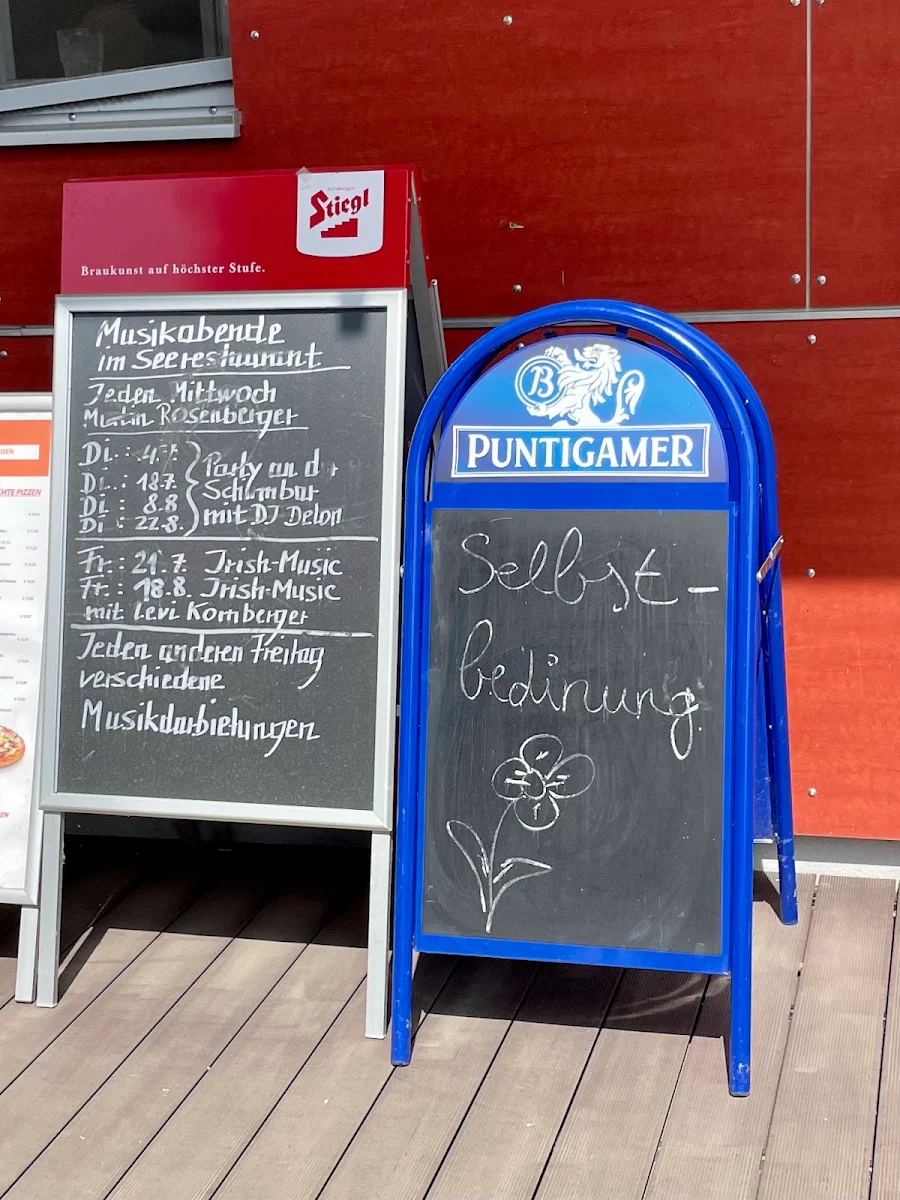 Salzburger
Stiegl
Braukunst auf höchster Stufe.
Musikabende
im Seerestaurant
Jeden Mittwoch
Rosenberger
Di.: 4.7.
Di.: 18.7.
Di.: 8.8
Di: 22.8.
Party an d
Schirmbar
mit DJ Delon
Fr.: 21.7. Irish-Music
Fr.: 18.8. Irish-Music
mit Levi Kornberger
Jeden anderen Freitag
verschiedene
Musikdarbietungen
B
PUNTIGAMER
Selbst-
bedinung
PIZZEN